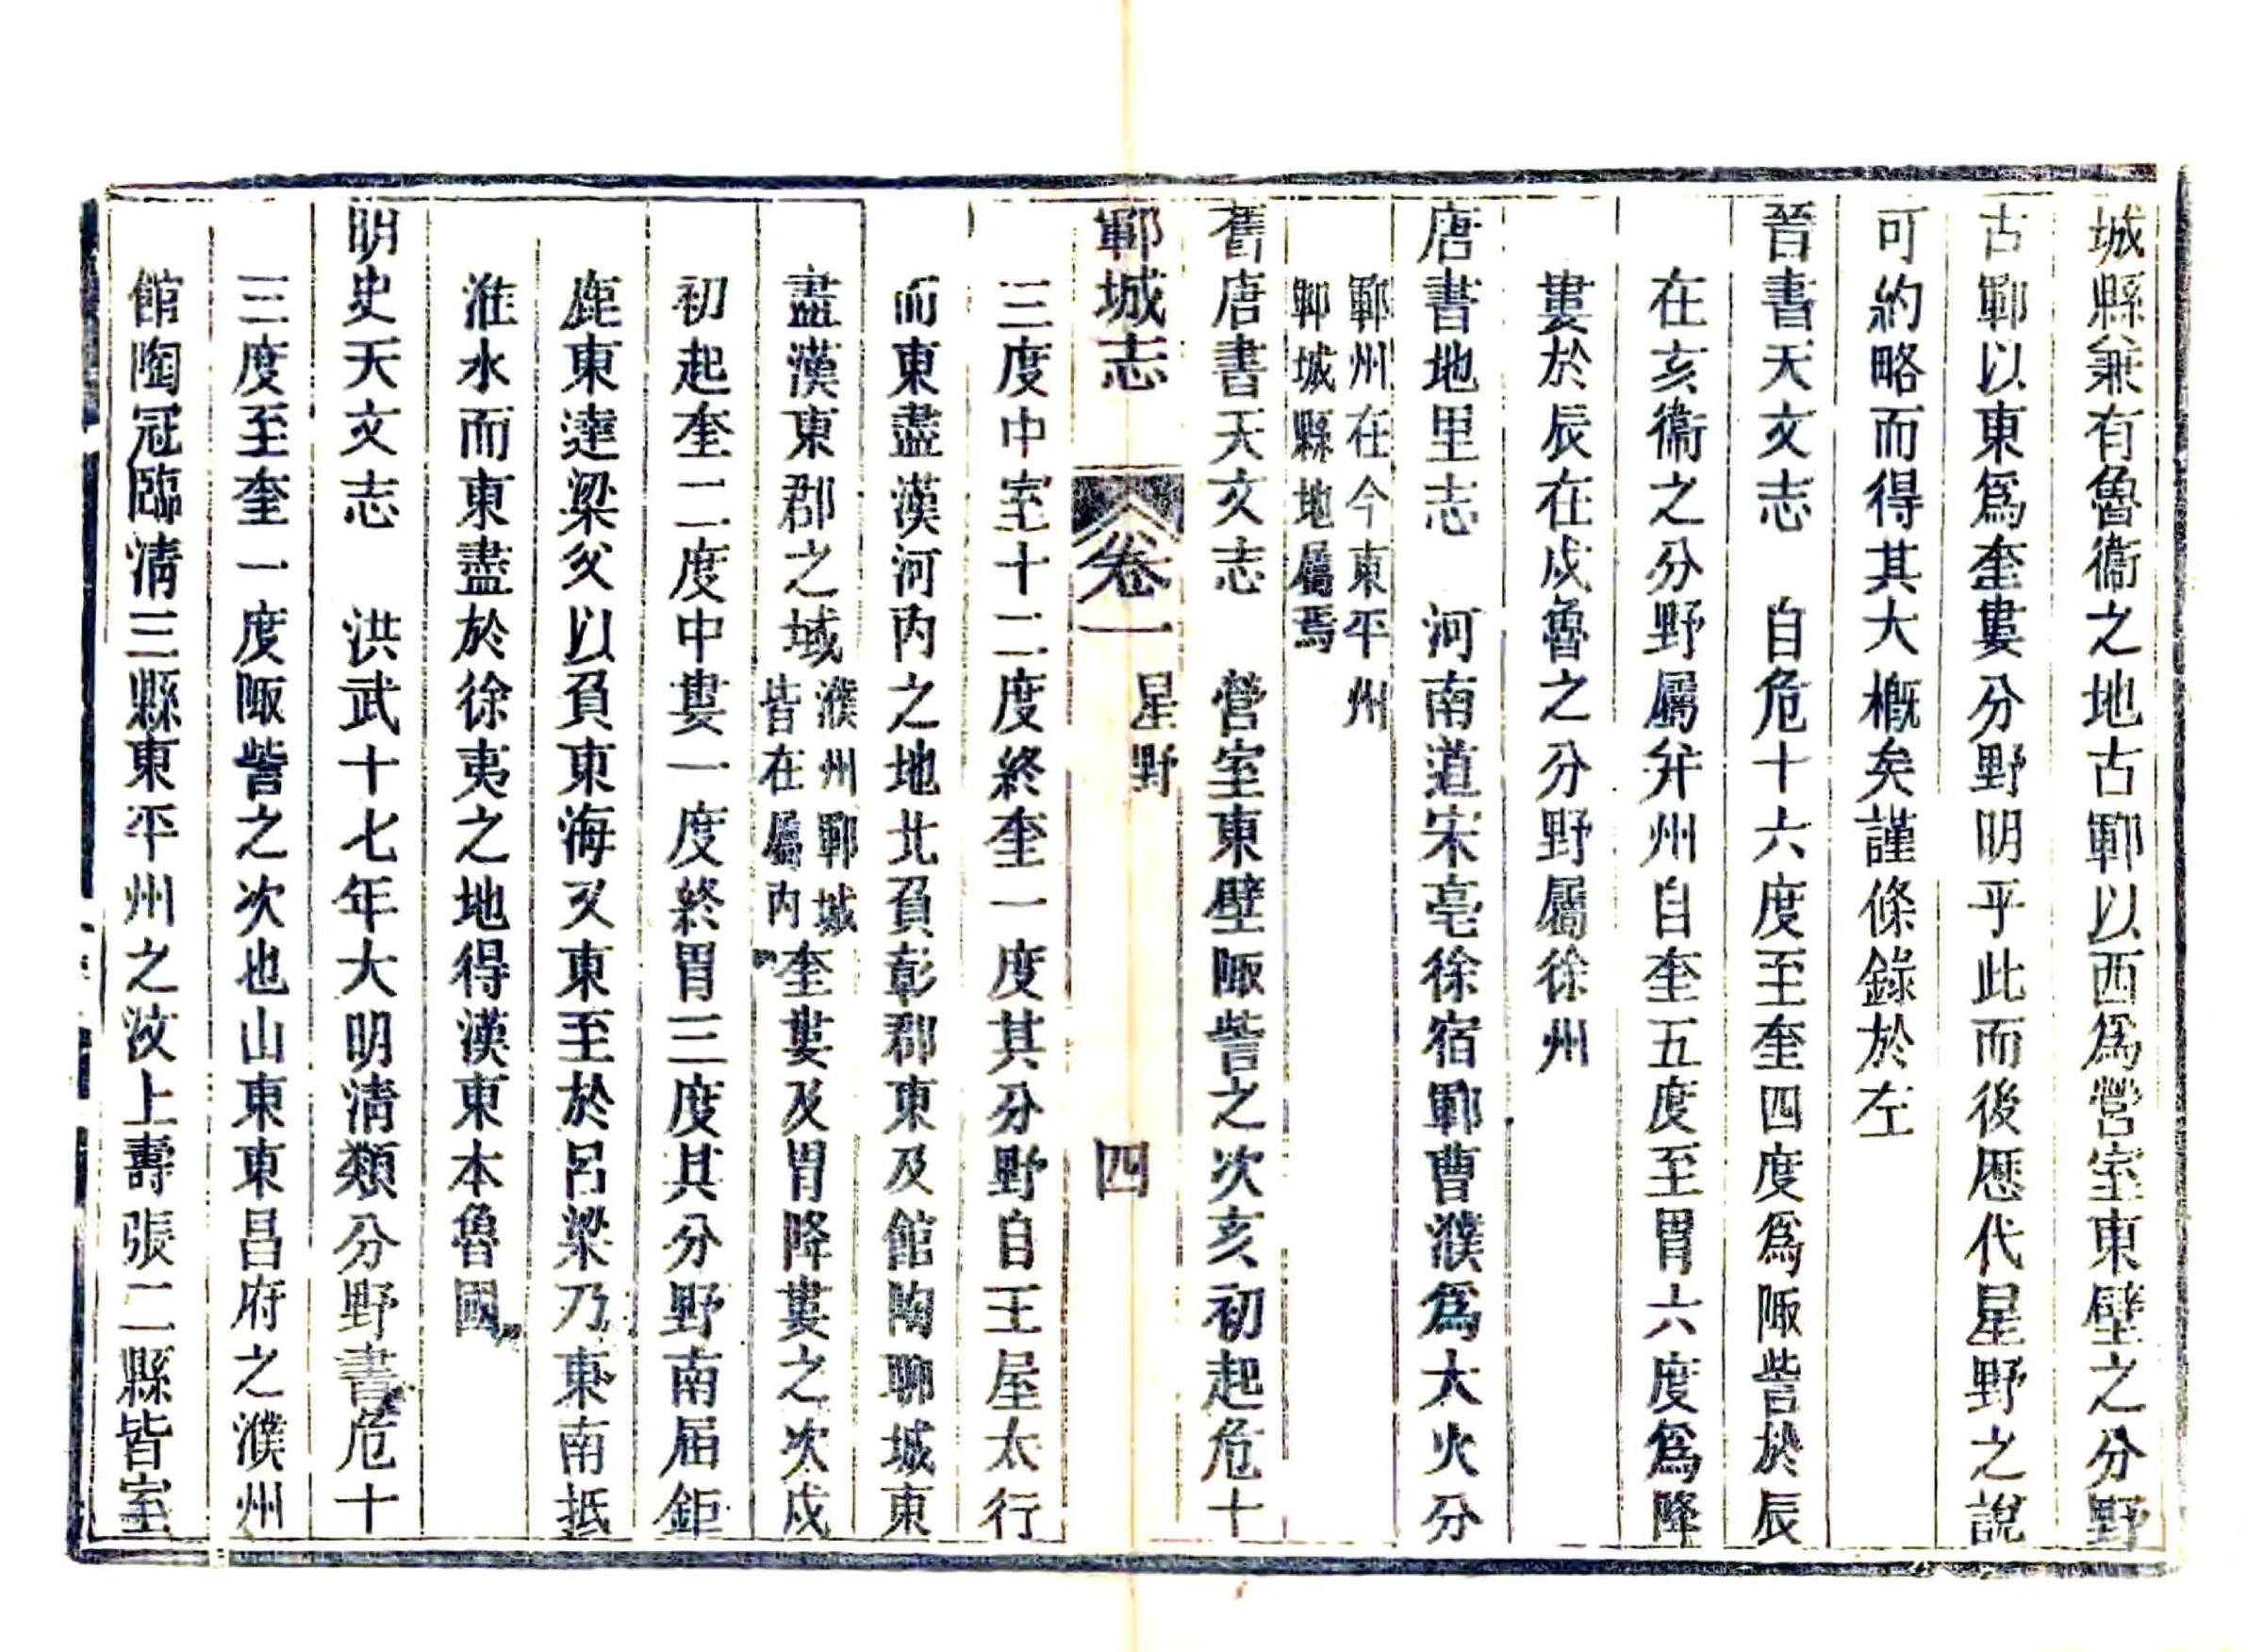 城縣兼有魯衞之地古鄆以西爲營室東壁之分野
古鄆以東爲奎婁分野明乎此而後歷代星野之說
可約略而得其大槪矣謹條錄於左
晉書天文志　自危十六度至奎四度爲陬訾於辰
在亥衞之分野屬并州自奎五度至胃六度爲降
婁於辰在戌魯之分野屬徐州
唐書地里志　河南道宋亳徐宿鄆曹濮爲大火分
鄆州在今東平州
鄆城縣地屬焉
舊唐書天文志　營室東壁陬訾之次亥初起危十
鄆城志　卷一　星野　四
三度中室十二度終奎一度其分野自王屋太行
而東盡漢河內之地北負彰郡東及館陶聊城東
盡漢東郡之域
濮州鄆城
皆在屬內
奎婁及胃降婁之次戌
初起奎二度中婁一度終胃三度其分野南屆鉅
鹿東達梁父以負東海又東至於呂梁乃東南抵
淮水而東盡於徐夷之地得漢東本魯國
明史天文志　洪武十七年大明清類分野書危十
三度至奎一度陬訾之次也山東東昌府之濮州
館陶冠臨清三縣東平州之汶上壽張二縣皆室